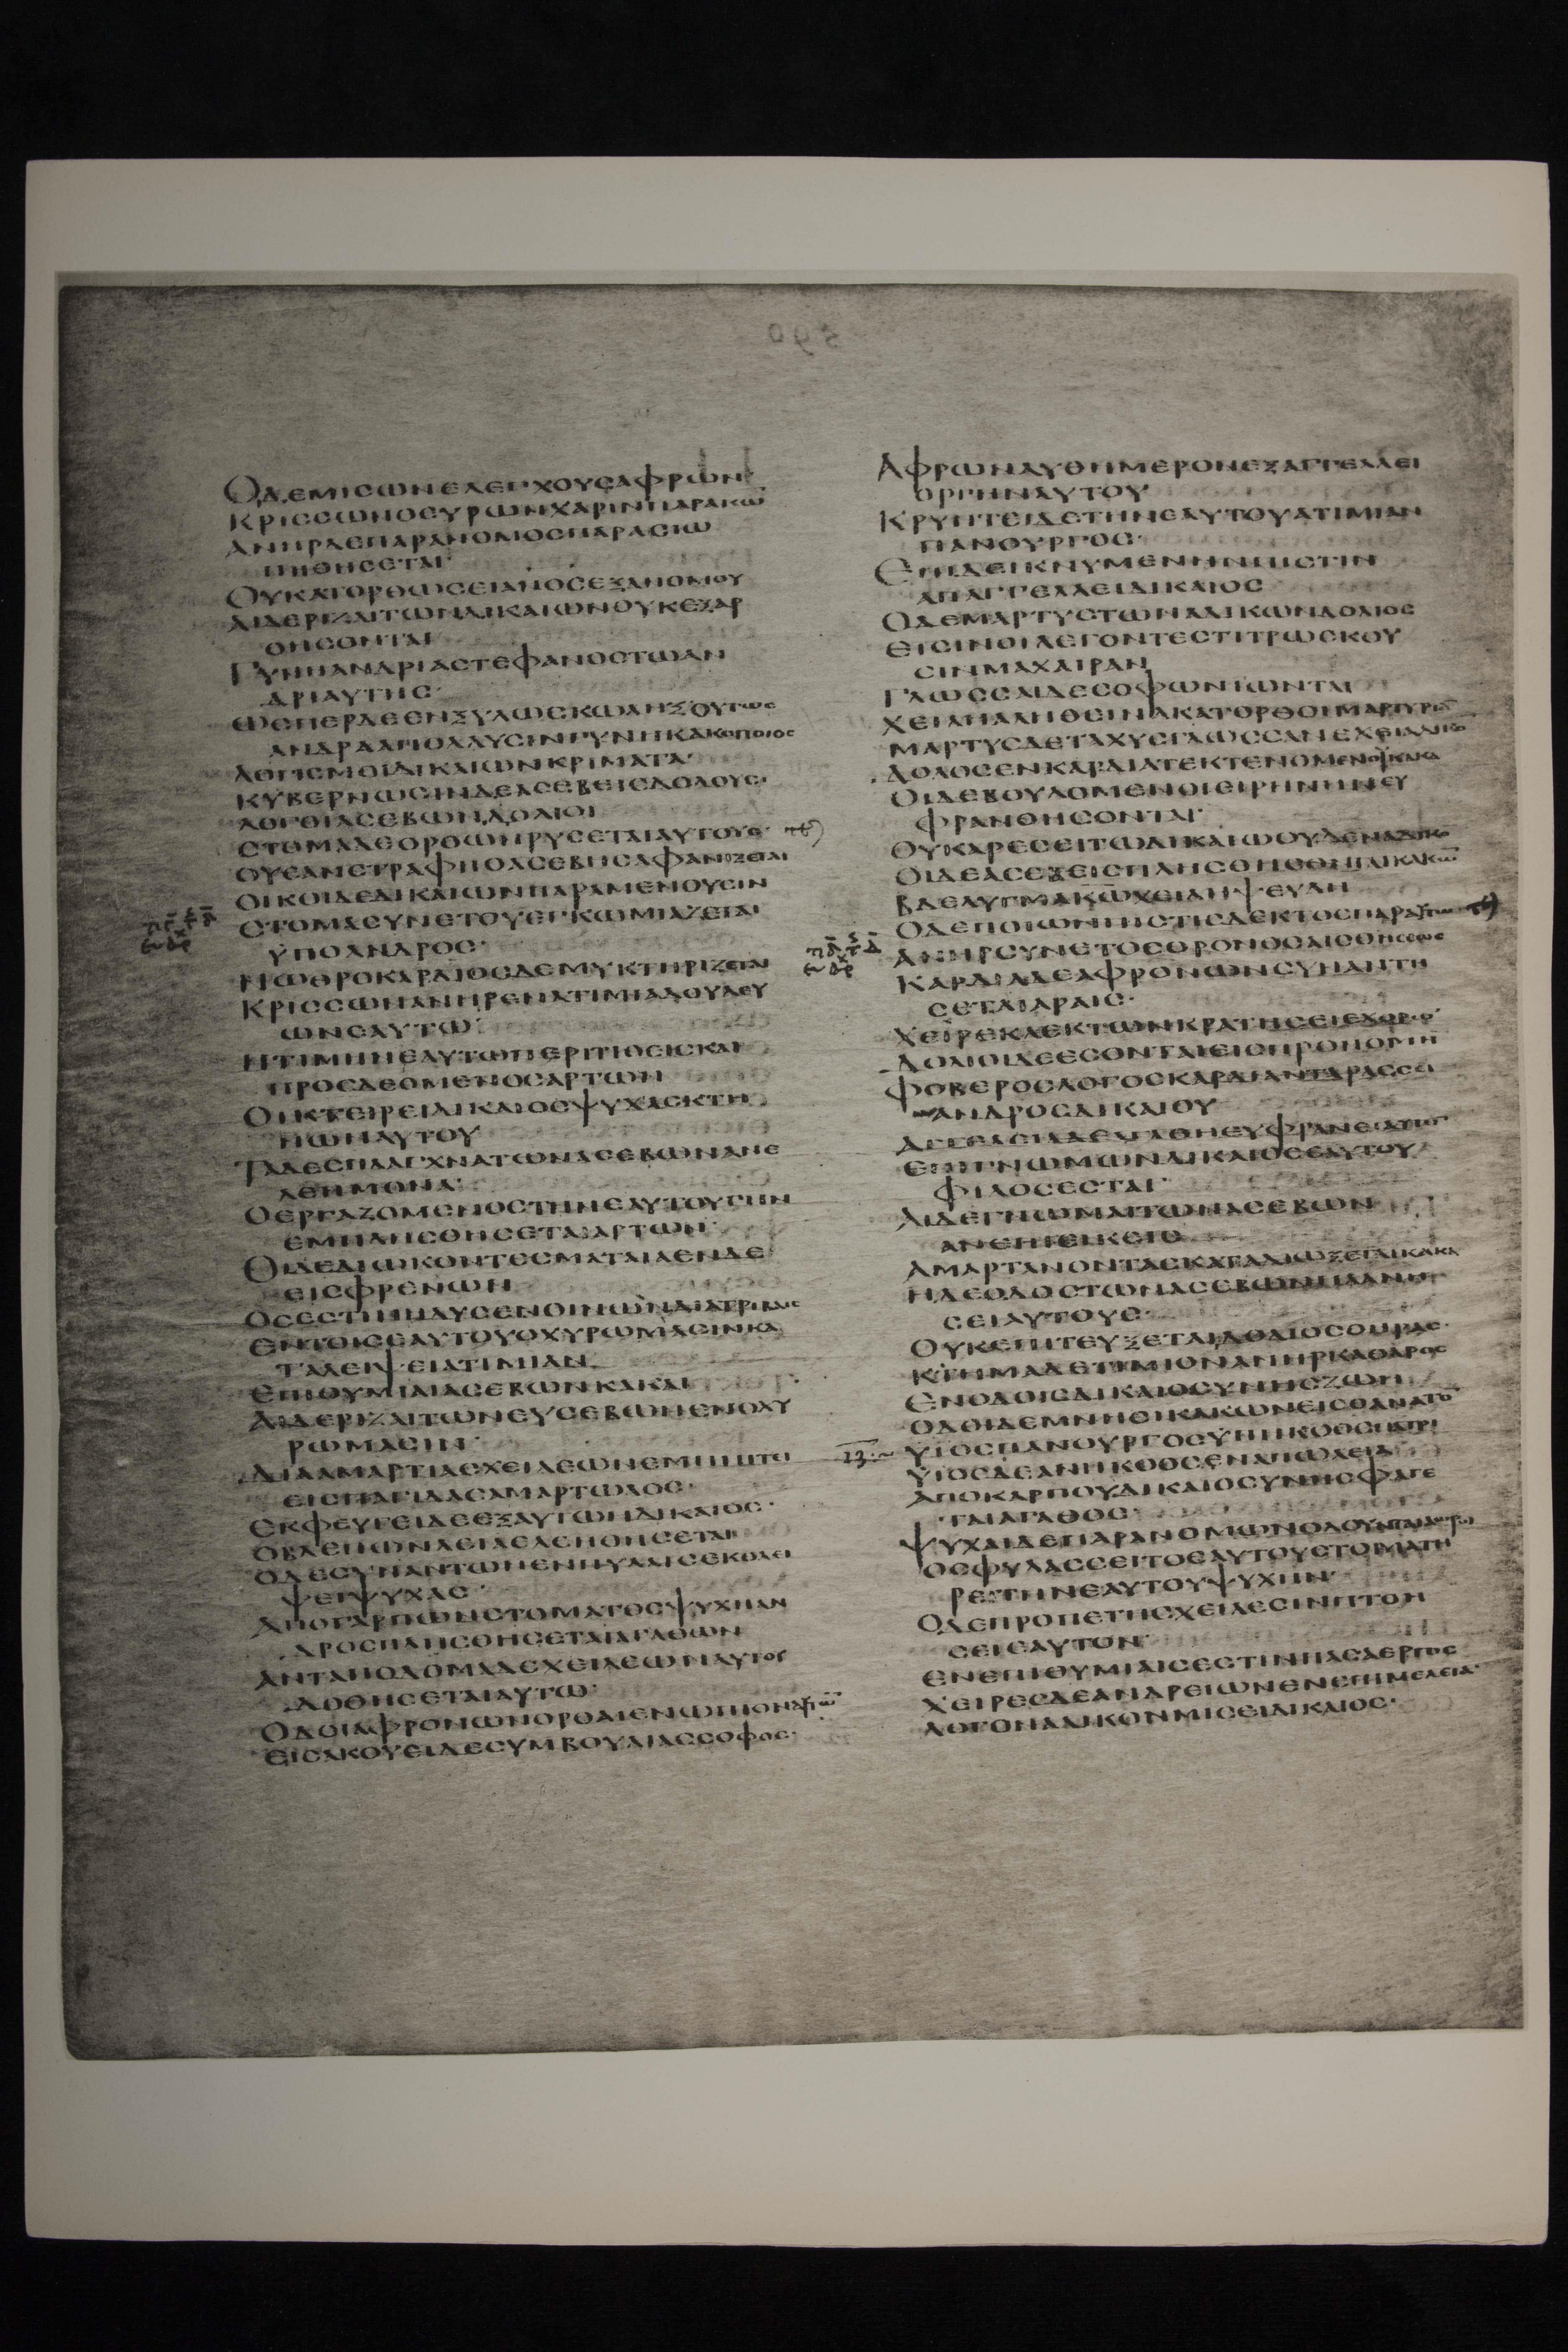 ΟΔΕΜΙCΩΝΕΛΕΓΧΟΥCΑΦΡΩΝ·
ΚΡΙCCΩΝΟΕΥΡΩΝΧΑΡΙΝΠΑΡΑΚΩ̄
ΑΝΗΡΔΕΠΑΡΑΝΟΜΟCΠΑΡΑCΙΩ
ΠΗΘΗCΕΤΑΙ·
ΟΥΚΑΤΟΡΘΩCΕΙΑΝΟCΕΞΑΝΟΜΟΥ
ΑΙΔΕΡΙΖΑΙΤΩΝΔΙΚΑΙΩΝΟΥΚΕΞΑΡ
ΘΗCΟΝΤΑΙ
ΓΥΝΗΑΝΔΡΙΑCΤΕΦΑΝΟCΤΩΑΝ
ΔΡΙΑΥΤΗC·
ΩCΠΕΡΔΕΕΝΞΥΛΩCΚΩΛΗΞΟΥΤΩC
ΑΝΔΡΑΑΠΟΛΛΥCΙΝΓΥΝΗΚΑΚΟΠΟΙΟC
ΛΟΓΙCΜΟΙΔΙΚΑΙΩΝΚΡΙΜΑΤΑ·
ΚΥΒΕΡΝΩCΙΝΔΕΑCΕΒΕΙCΔΟΛΟΥC·
ΛΟΓΟΙΑCΕΒΩΝΔΟΛΙΟΙ
CΤΟΜΑΔΕΟΡΘΩΝΡΥCΕΤΑΙΑΥΤΟΥC·
ΟΥΕΑΝCΤΡΑΦΗΟΑCΕΒΗCΑΦΑΝΙΖΕΤΑΙ
ΟΙΚΟΙΔΕΔΙΚΑΙΩΝΠΑΡΑΜΕΝΟΥCΙΝ
CΤΟΜΑCΥΝΕΤΟΥΕΓΚΩΜΙΑΖΕΤΑΙ
ΫΠΟΑΝΔΡΟC·
ΝΩΘΡΟΚΑΡΔΙΟCΔΕΜΥΚΤΗΡΙΖΕΤΑΙ
ΚΡΙCCΩΝΑΝΗΡΕΝΑΤΙΜΙΑΔΟΥΛΕΥ
ΩΝΕΑΥΤΩ·
ΗΤΙΜΗΝΕΑΥΤΩΠΕΡΙΤΙΘΕΙCΚΑΙ
ΠΡΟCΔΕΟΜΕΝΟCΑΡΤΩΝ
ΟΙΚΤΕΙΡΕΙΔΙΚΑΙΟCΨΥΧΑCΚΤΗ
ΝΩΝΑΥΤΟΥ
ΤΑΔΕCΠΛΑΓΧΝΑΤΩΝΑCΕΒΩΝΑΝΕ
ΛΕΗΜΟΝΑ·
ΟΕΡΓΑΖΟΜΕΝΟCΤΗΝΕΑΥΤΟΥΓΗΝ
ΕΜΠΛΗCΘΗCΕΤΑΙΑΡΤΩΝ·
ΟΙΔΕΔΙΩΚΟΝΤΕCΜΑΤΑΙΑΕΝΔΕ
ΕΙCΦΡΕΝΩΝ
ΟCΕCΤΙΝΗΔΥCΕΝΟΙΝΩΝΔΙΑΤΡΙΒΑΙC
ΕΝΤΟΙCΕΑΥΤΟΥΟΧΥΡΩΜΑCΙΝΚΑ
ΤΑΛΕΙΨΕΙΑΤΙΜΙΑΝ
ΕΠΙΘΥΜΙΑΙΑCΕΒΩΝΚΑΚΑΙ
ΑΙΔΕΡΙΖΑΙΤΩΝΕΥCΕΒΩΝΕΝΟΧΥ
ΡΩΜΑCΙΝ·
ΔΙΑΑΜΑΡΤΙΑCΧΕΙΛΕΩΝΕΜΠΙΠΤΕΙ
ΕΙCΠΑΓΙΔΑCΑΜΑΡΤΩΛΟC·
ΕΚΦΕΥΓΕΙΔΕΕΞΑΥΤΩΝΔΙΚΑΙΟC·
ΟΒΛΕΠΩΝΛΕΙΑΕΛΕΗΘΗCΕΤΑΙ
ΟΔΕCΥΝΑΝΤΩΝΕΝΠΥΛΑΙCΕΚΘΛΕΙ
ΨΕΙΨΥΧΑC·
ΑΠΟΓΑΡΠΩΝCΤΟΜΑΤΟCΨΥΧΗΑΝ
ΔΡΟCΠΛΗCΘΗCΕΤΑΙΑΓΑΘΩΝ
ΑΝΤΑΠΟΔΟΜΑΔΕΧΕΙΛΕΩΝΑΥΤΟΥ
ΔΟΘΗCΕΤΑΙΑΥΤΩ·
ΟΔΟΙΑΦΡΟΝΩΝΟΡΘΑΙΕΝΩΠΙΟΝΑΥΤΩ̄
ΕΙCΑΚΟΥΕΙΔΕCΥΜΒΟΥΛΙΑCCΟΦΟC·
ΑΦΡΩΝΑΥΘΗΜΕΡΟΝΕΞΑΓΓΕΛΛΕΙ
ΟΡΓΗΝΑΥΤΟΥ
ΚΡΥΠΤΕΙΔΕΤΗΝΕΑΥΤΟΥΑΤΙΜΙΑΝ
ΠΑΝΟΥΡΓΟC·
ΕΠΙΔΕΙΚΝΥΜΕΝΗΝΠΙCΤΙΝ
ΑΠΑΓΓΕΛΛΕΙΔΙΚΑΙΟC
ΟΔΕΜΑΡΤΥCΤΩΝΑΔΙΚΩΝΔΟΛΙΟC
ΕΙCΙΝΟΙΛΕΓΟΝΤΕCΤΙΤΡΩCΚΟΥ
CΙΝΜΑΧΑΙΡΑΝ
ΓΛΩCCΑΙΔΕCΟΦΩΝΙΩΝΤΑΙ
ΧΕΙΛΗΑΛΗΘΕΙΝΑΚΑΤΟΡΘΟΙΜΑΡΤΥΡΙΑΝ
ΜΑΡΤΥCΔΕΤΑΧΥCΓΛΩCCΑΝΕΧΕΙΑΔΙΚΟΝ
ΔΟΛΟCΕΝΚΑΡΔΙΑΤΕΚΤΕΝΟΜΕΝΟΥΚΑΚΑ
ΟΙΔΕΒΟΥΛΟΜΕΝΟΙΕΙΡΗΝΗΝΕΥ
ΦΡΑΝΘΗCΟΝΤΑΙ·
ΟΥΚΑΡΕCΕΙΤΩΔΙΚΑΙΩΟΥΔΕΝΑΔΙΚΟ
ΟΙΔΕΑCΕΒΕΙCΠΛΗCΘΗCΟΝΤΑΙΚΑΚΩ̄
ΒΔΕΛΥΓΜΑΚ̄Ω̄ΧΕΙΛΗΨΕΥΔΗ
ΟΔΕΠΟΙΩΝΠΙCΤΙCΔΕΚΤΟCΠΑΡΑΥΤΩ
ΑΝΗΡCΥΝΕΤΟCΘΡΟΝΟCΑΙCΘΗCΕΩC
ΚΑΡΔΙΑΔΕΑΦΡΟΝΩΝCΥΝΑΝΤΗ
CΕΤΑΙΑΡΑΙC·
ΧΕΙΡΕΚΛΕΚΤΩΝΚΡΑΤΗCΕΙΕΥΧΕΡΩC
ΔΟΛΙΟΙΔΕΕCΟΝΤΑΙΕΙCΠΡΟΝΟΜΗ
ΦΟΒΕΡΟCΛΟΓΟCΚΑΡΔΙΑΝΤΑΡΑCCΕΙ
ΑΝΔΡΟCΔΙΚΑΙΟΥ
ΑΓΓΕΛΙΑΔΕΑΓΑΘΗΕΥΦΡΑΝΕΙΑΥΤΟΝ
ΕΠΙΓΝΩΜΩΝΔΙΚΑΙΟCΕΑΥΤΟΥ
ΦΙΛΟCΕCΤΑΙ·
ΑΙΔΕΓΝΩΜΑΙΤΩΝΑCΕΒΩΝ
ΑΝΕΠΙΕΙΚΕΙC
ΑΜΑΡΤΑΝΟΝΤΑCΚΑΤΑΔΙΩΞΕΤΑΙΚΑΚΑ
ΗΔΕΟΔΟCΤΩΝΑCΕΒΩΝΠΛΑΝΗ
CΕΙΑΥΤΟΥC·
ΟΥΚΕΠΙΤΕΥΞΕΤΑΙΔΟΛΙΟCΘΗΡΑC·
ΚΤΗΜΑΔΕΤΙΜΙΟΝΑΝΗΡΚΑΘΑΡΟC
ΕΝΟΔΟΙCΔΙΚΑΙΟCΥΝΗCΖΩΗ
ΟΔΟΙΔΕΜΝΗCΙΚΑΚΩΝΕΙCΘΑΝΑΤΟ̄
ΫΙΟCΠΑΝΟΥΡΓΟCΫΠΗΚΟΟCΠΑΤΡΙ
ΫΙΟCΔΕΑΝΗΚΟΟCΕΝΑΠΩΛΕΙΑ
ΑΠΟΚΑΡΠΟΥΔΙΚΑΙΟCΥΝΗCΦΑΓΕ
ΤΑΙΑΓΑΘΟC·
ΨΥΧΑΙΔΕΠΑΡΑΝΟΜΩΝΟΛΟΥΝΤΑΙΑΩΡΟΙ
ΟCΦΥΛΑCCΕΙΤΟΕΑΥΤΟΥCΤΟΜΑΤΗ
ΡΕΙΤΗΝΕΑΥΤΟΥΨΥΧΗΝ·
ΟΔΕΠΡΟΠΕΤΗCΧΕΙΛΕCΙΝΠΤΟΗ
CΕΙΕΑΥΤΟΝ·
ΕΝΕΠΙΘΥΜΙΑΙCΕCΤΙΝΠΑCΑΕΡΓΟC
ΧΕΙΡΕCΔΕΑΝΔΡΕΙΩΝΕΝΕΠΙΜΕΛΕΙΑ·
ΛΟΓΟΝΑΔΙΚΟΝΜΙCΕΙΔΙΚΑΙΟC·